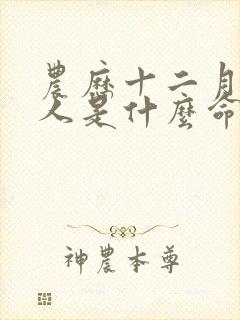 農歷十二月
人是什麼命
神農本尊